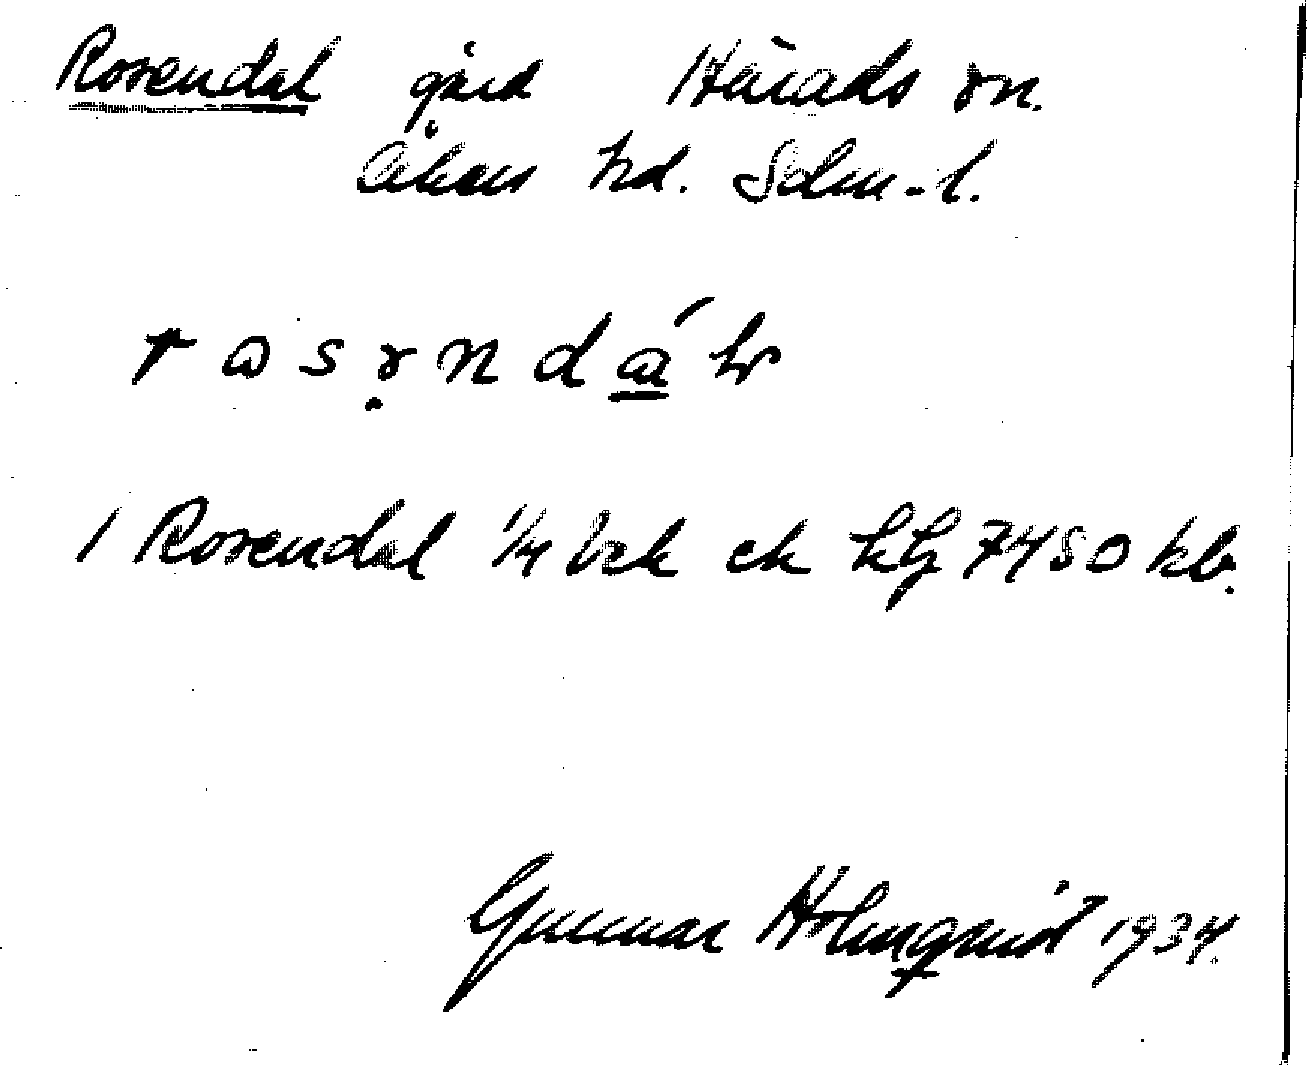 Rosendal gård Härads sn.
Åkers hd. Sdm-l.
1 Rosendal 1/4 kr ck hfg 7450 kb.
Gunnar Holmquist 1934.